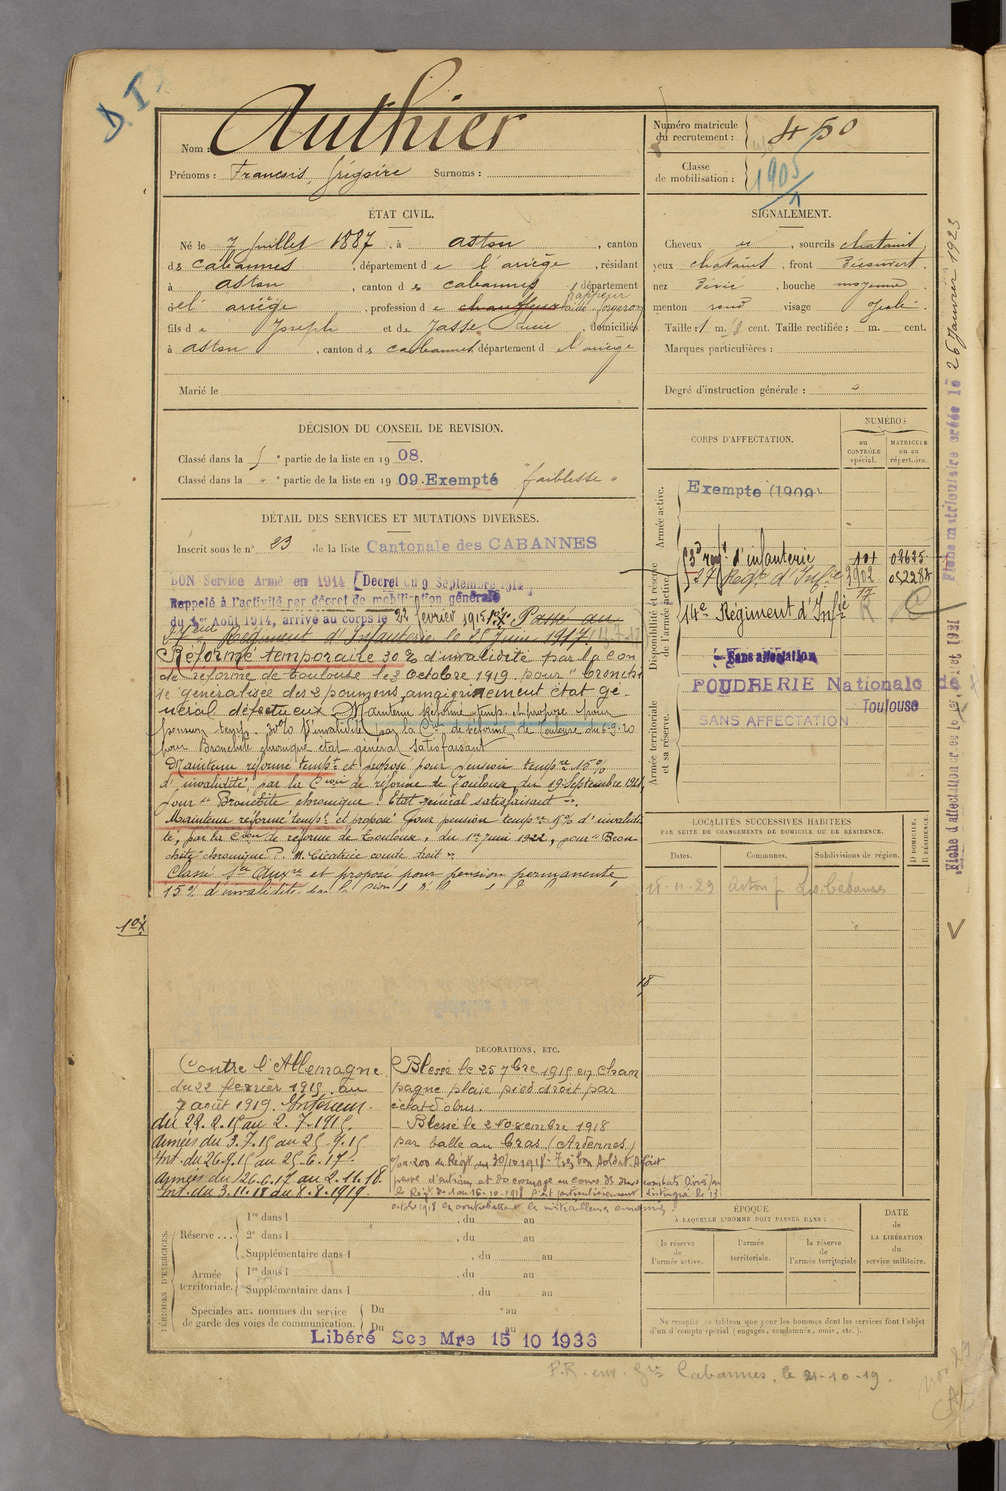 D.T.
Nom : Authier
Prénoms : François, Grégoire Surnoms :
Numéro matricule
du recrutement : 450
Classe
de mobilisation : 1905
ÉTAT CIVIL.
Né le 7 Juillet 1887, à Aston, canton
des Cabannes, département de l'ariège, résidant
à Aston, canton des Cabannes, département
de l'ariège, profession de chauffeur frappeur forgeron
fils de Joseph et de Jasse, domiciliés
à Aston, canton des Cabannes département de l'ariège
Marié le
SIGNALEMENT.
Cheveux et, sourcils chatains
yeux chatains, front découvert
nez, bouche moyenne
menton rond visage ovale.
Taille : 1 m. cent. Taille rectifiée : m. cent.
Marques particulières :
Degré d'instruction générale :
DÉCISION DU CONSEIL DE REVISION.
Classé dans la partie de la liste en 1908.
Classé dans la " partie de la liste en 1909. Exempté "faiblesse"
DÉTAIL DES SERVICES ET MUTATIONS DIVERSES.
Inscrit sous le n° 23 de la liste Cantonale des CABANNES
BON Service Armé en 1914 [Decret du 9 Septembre 1914
Rappelé à l'activité par décret de mobilisation générale
du 1er Août 1914, arrivé au corps le 22 février 1915. Passé au
Régiment d'Infanterie le 25 Juin 1917.
Réforme temporaire 30% d'invalidité par la Con
de réforme de Toulouse le 3 octobre 1919 pour "bronchi
te généralisée des 2 poumons, amaigrissement état gé
néral défectueux. Maintenu réformé temp. et proposé pour
pension temp. 30% d'invalidité par la Con de réforme de Toulouse du
pour Bronchite chronique état général satisfaisant
Maintenu réformé tempre et proposé pour pension tempre 15%
d'invalidité, par la Con de réforme de Toulouse, du 19 Septembre 1921,
pour "Bronchite chronique. Etat général satisfaisant".
Maintenu réformé tempre et proposé pour pension tempre 15% d'invalidi
té, par la Con de réforme de Toulouse, du 1er Juin 1922, pour "Bron
chite chronique". Cicatrice coude droit".
Classé Sce Auxre et proposé pour pension permanente
15% d'invalidité
CORPS D'AFFECTATION.
NUMÉROS
au
CONTRÔLE
spécial.
MATRICULE
ou au
répertoire.
Armée active.
Exempté (1909)
Disponibilité et réserve
de l'armée active.
53e regt d'infanterie 101 02625
27e Régt d'Infie 2902 05228
14e Régiment d'Infie R
Sans affectation
Armée territoriale
et sa réserve.
POUDRERIE Nationale de
Toulouse
SANS AFFECTATION
LOCALITÉS SUCCESSIVES HABITÉES
PAR SUITE DE CHANGEMENTS DE DOMICILE OU DE RÉSIDENCE.
Dates.
Communes.
Subdivisions de région.
D DOMICILE.
R RÉSIDENCE.
18-11-29 Aston Les Cabannes
Contre l'Allemagne
du 22 février 1915 au
7 août 1919. Intérieur.
du 22.2.15 au 2.7.1915.
Armées du 3.7.15 au 25.9.15
Int. du 26.9.15 au 25.6.17.
Armées du 26.6.17 au 2.11.18.
Int. du 3.11.18 du 8.8.1919.
DÉCORATIONS, ETC.
Blessé le 25 7bre 1915 en Cham
pagne plaie pied droit par
éclat d'obus.
- Blessé le 2 Novembre 1918
par balle au bras (Ardennes)
O/n 200 du Régt du 30/12/1918. Très bon Soldat. A fait
preuve d'entrain et de courage au cours des durs combats livrés par
le Régt du 1 au 16-10-1918 s'est particulièrement distingué le 13
octobre 1918 en contrebattant les mitrailleuses ennemies
PÉRIODES D'EXERCICES.
Réserve ... 1re dans l, du au
2e dans l, du au
Supplémentaire dans l, du au
Armée
territoriale. 1re dans l, du au
Supplémentaire dans l, du au
Spéciales aux hommes du service
de garde des voies de communication. Du au
Du au
Libéré Sce Mre 15 10 1936
ÉPOQUE
À LAQUELLE L'HOMME DOIT PASSER DANS :
la réserve
de
l'armée active.
l'armée
territoriale.
la réserve
de
l'armée territoriale
DATE
de
LA LIBÉRATION
du
service militaire.
Ne remplir ce tableau que pour les hommes dont les services font l'objet
d'un compte spécial (engagés, condamnés, omis, etc.).
F.R. env. Gie Cabannes, le 21-10-19.
Fiche matriculaire créée le 26 Janvier 1923